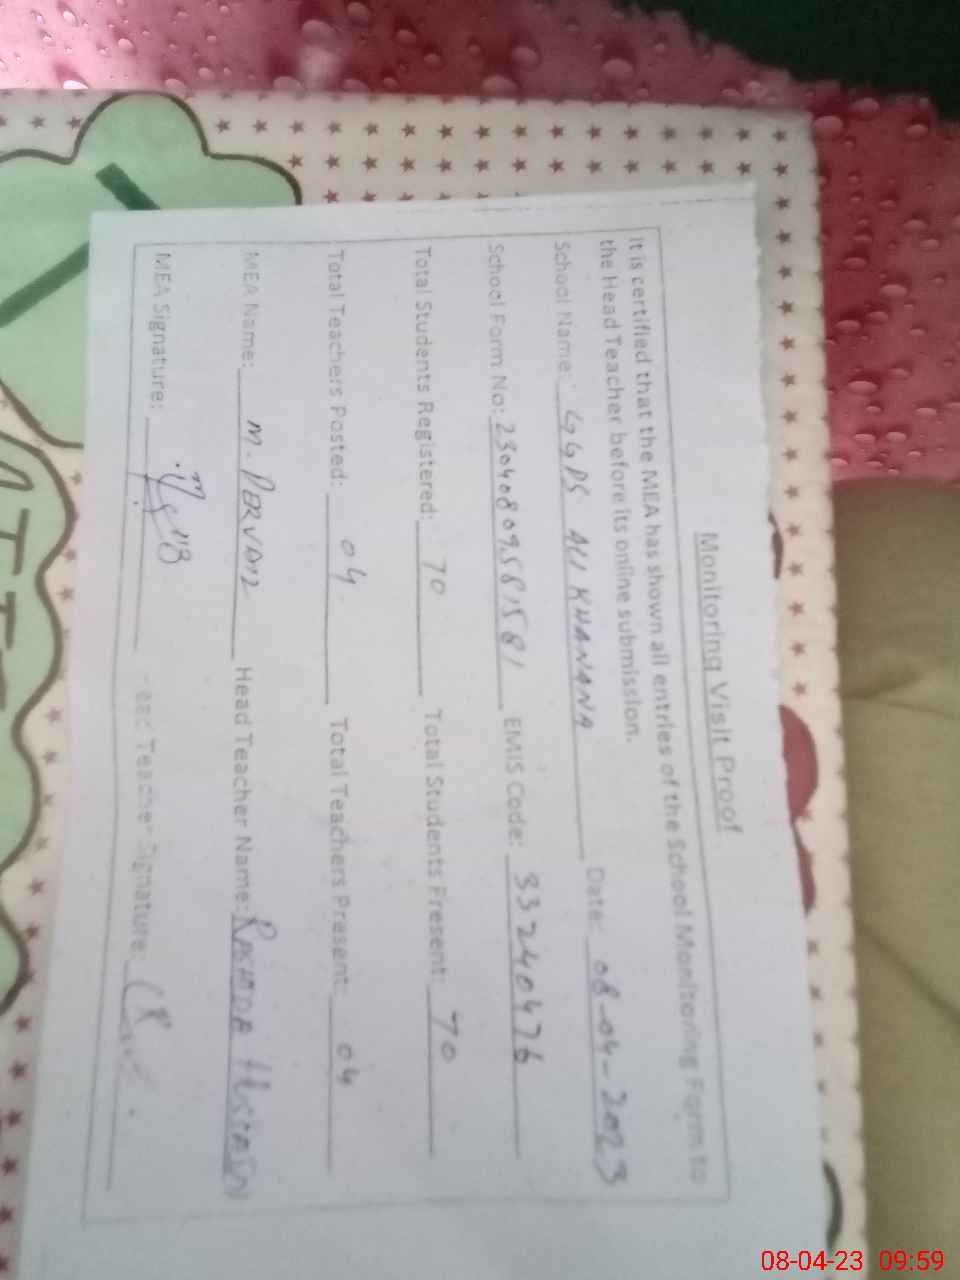 Monitoring Visit Proof
It is certified that the MEA has shown all entries of the School Monitoring Form to
the Head Teacher before its online submission.
School Name: GGPS ALI KHANANA Date: 08-04-2023
School Form No: 23040809581581 EMIS Code: 33240476
Total Students Registered: 70 Total Students Present: 70
Total Teachers Posted: 04 Total Teachers Present: 04
MEA Name: M. PERVAIZ Head Teacher Name: RASHIDA
MEA Signature: Head Teacher Signature:
08-04-23 09:59